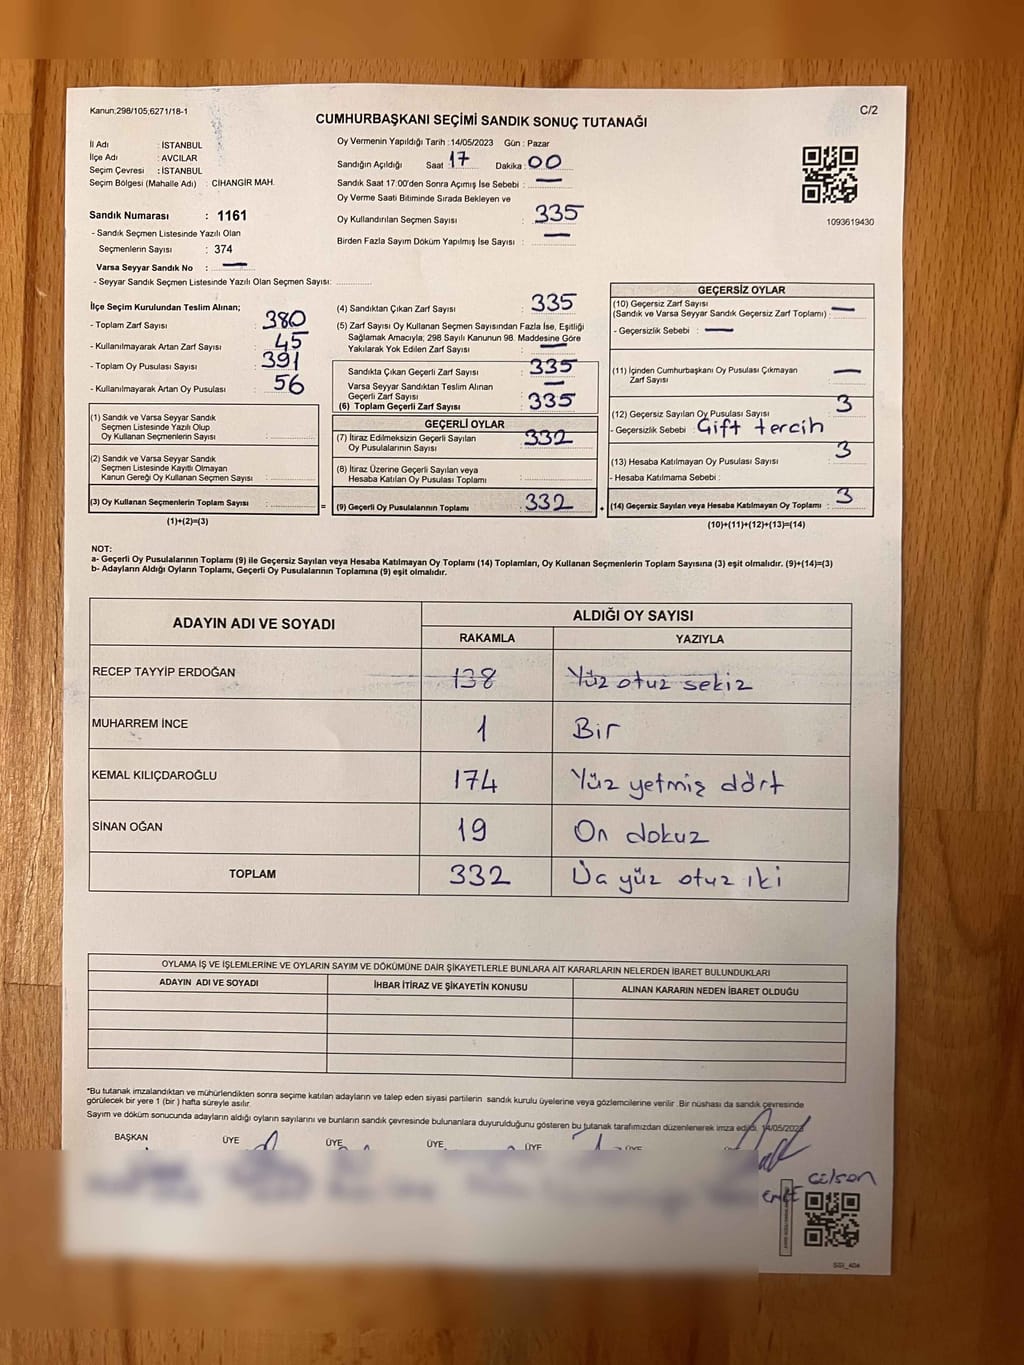 Kanun;298/105;6271/18-1
C/2
CUMHURBAŞKANI SEÇİMİ SANDIK SONUÇ TUTANAĞI
İl Adı : İSTANBUL
İlçe Adı : AVCILAR
Seçim Çevresi : İSTANBUL
Seçim Bölgesi (Mahalle Adı) : CİHANGİR MAH.
Sandık Numarası : 1161
- Sandık Seçmen Listesinde Yazılı Olan
Seçmenlerin Sayısı : 374
Varsa Seyyar Sandık No : —
- Seyyar Sandık Seçmen Listesinde Yazılı Olan Seçmen Sayısı:
Oy Vermenin Yapıldığı Tarih : 14/05/2023 Gün : Pazar
Sandığın Açıldığı Saat : 17 Dakika : 00
Sandık Saat 17:00'den Sonra Açımış İse Sebebi : —
Oy Verme Saati Bitiminde Sırada Bekleyen ve
Oy Kullandırılan Seçmen Sayısı : 335
Birden Fazla Sayım Döküm Yapılmış İse Sayısı : —
1093619430
İlçe Seçim Kurulundan Teslim Alınan;
- Toplam Zarf Sayısı : 380
- Kullanılmayarak Artan Zarf Sayısı : 45
- Toplam Oy Pusulası Sayısı : 391
- Kullanılmayarak Artan Oy Pusulası : 56
(1) Sandık ve Varsa Seyyar Sandık
Seçmen Listesinde Yazılı Olup
Oy Kullanan Seçmenlerin Sayısı :
(2) Sandık ve Varsa Seyyar Sandık
Seçmen Listesinde Kayıtlı Olmayan
Kanun Gereği Oy Kullanan Seçmen Sayısı :
(3) Oy Kullanan Seçmenlerin Toplam Sayısı :
(1)+(2)=(3)
=
(4) Sandıktan Çıkan Zarf Sayısı : 335
(5) Zarf Sayısı Oy Kullanan Seçmen Sayısından Fazla İse, Eşitliği
Sağlamak Amacıyla; 298 Sayılı Kanunun 98. Maddesine Göre
Yakılarak Yok Edilen Zarf Sayısı : —
Sandıkta Çıkan Geçerli Zarf Sayısı : 335
Varsa Seyyar Sandıktan Teslim Alınan
Geçerli Zarf Sayısı : —
(6) Toplam Geçerli Zarf Sayısı : 335
GEÇERLİ OYLAR
(7) İtiraz Edilmeksizin Geçerli Sayılan
Oy Pusulalarının Sayısı : 332
(8) İtiraz Üzerine Geçerli Sayılan veya
Hesaba Katılan Oy Pusulası Toplamı :
(9) Geçerli Oy Pusulalarının Toplamı : 332
+
GEÇERSİZ OYLAR
(10) Geçersiz Zarf Sayısı
(Sandık ve Varsa Seyyar Sandık Geçersiz Zarf Toplamı) : —
- Geçersizlik Sebebi : —
(11) İçinden Cumhurbaşkanı Oy Pusulası Çıkmayan
Zarf Sayısı : —
(12) Geçersiz Sayılan Oy Pusulası Sayısı : 3
- Geçersizlik Sebebi : Çift tercih
(13) Hesaba Katılmayan Oy Pusulası Sayısı : 3
- Hesaba Katılmama Sebebi :
(14) Geçersiz Sayılan veya Hesaba Katılmayan Oy Toplamı : 3
(10)+(11)+(12)+(13)=(14)
NOT:
a- Geçerli Oy Pusulalarının Toplamı (9) ile Geçersiz Sayılan veya Hesaba Katılmayan Oy Toplamı (14) Toplamları, Oy Kullanan Seçmenlerin Toplam Sayısına (3) eşit olmalıdır. (9)+(14)=(3)
b- Adayların Aldığı Oyların Toplamı, Geçerli Oy Pusulalarının Toplamına (9) eşit olmalıdır.
ADAYIN ADI VE SOYADI ALDIĞI OY SAYISI
RAKAMLA YAZIYLA
RECEP TAYYİP ERDOĞAN 138 Yüz otuz sekiz
MUHARREM İNCE 1 Bir
KEMAL KILIÇDAROĞLU 174 Yüz yetmiş dört
SİNAN OĞAN 19 On dokuz
TOPLAM 332 Üç yüz otuz iki
OYLAMA İŞ VE İŞLEMLERİNE VE OYLARIN SAYIM VE DÖKÜMÜNE DAİR ŞİKAYETLERLE BUNLARA AİT KARARLARIN NELERDEN İBARET BULUNDUKLARI
ADAYIN ADI VE SOYADI İHBAR İTİRAZ VE ŞİKAYETİN KONUSU ALINAN KARARIN NEDEN İBARET OLDUĞU
*Bu tutanak imzalandıktan ve mühürlendikten sonra seçime katılan adayların ve talep eden siyasi partilerin sandık kurulu üyelerine veya gözlemcilerine verilir. Bir nüshası da sandık çevresinde
görülecek bir yere 1 (bir) hafta süreyle asılır.
Sayım ve döküm sonucunda adayların aldığı oyların sayılarını ve bunların sandık çevresinde bulunanlara duyurulduğunu gösteren bu tutanak tarafımızdan düzenlenerek imza edildi. 14/05/2023
BAŞKAN ÜYE ÜYE ÜYE ÜYE ÜYE